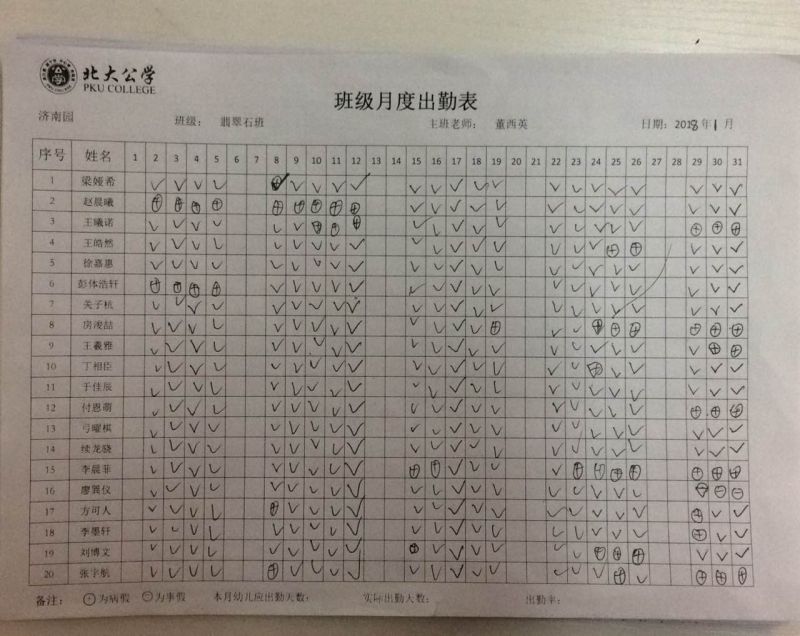 北大公学
PKU COLLEGE
班级月度出勤表
济南园 班级： 翡翠石班 主班老师： 董西英 日期：2018年1月
序号 姓名 1 2 3 4 5 6 7 8 9 10 11 12 13 14 15 16 17 18 19 20 21 22 23 24 25 26 27 28 29 30 31
1 梁娅希
2 赵晨曦
3 王曦诺
4 王皓然
5 徐嘉惠
6 彭体浩轩
7 关子杭
8 房浚喆
9 王羲雅
10 丁相臣
11 于佳辰
12 付恩萌
13 弓曜棋
14 续龙骁
15 李晨菲
16 廖巽仪
17 方可人
18 李墨轩
19 刘博文
20 张字航
备注： ⊕为病假 ⊖为事假 本月幼儿应出勤天数： 实际出勤天数： 出勤率：